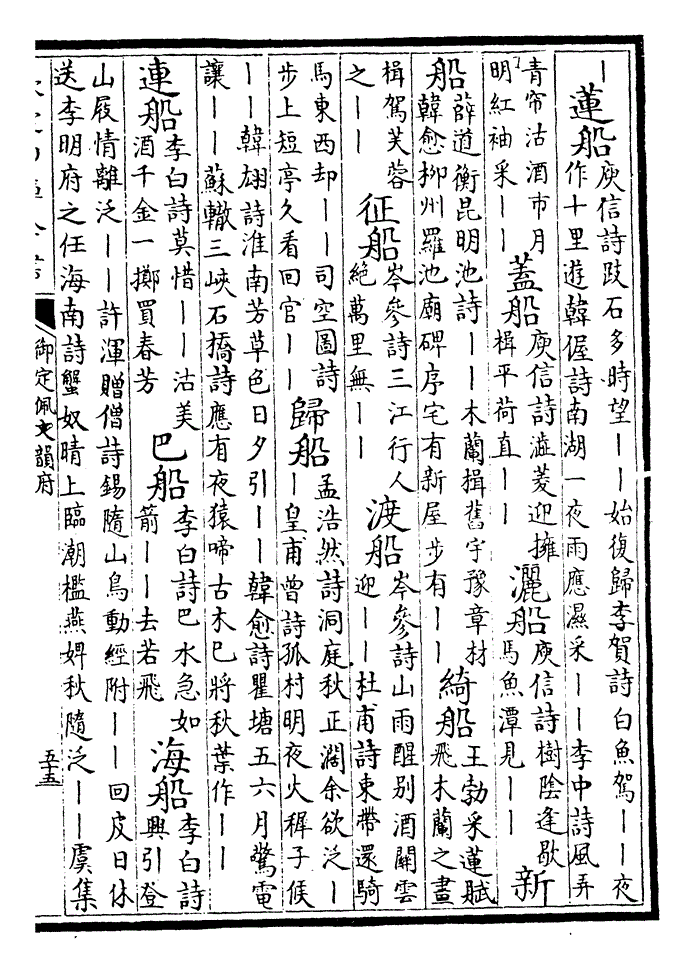 丨蓮船庾信詩跂石多時望丨丨始復歸李賀詩白魚駕丨丨夜作十里遊韓偓詩南湖一夜雨應濕采丨丨李中詩風弄
青帘沽酒市月明紅袖采丨丨蓋船庾信詩澁菱迎擁楫平荷直丨丨灑船庾信詩樹陰逢歇馬魚潭見丨丨新
船薛道衡昆明池詩丨丨木蘭揖舊宇豫章材韓愈柳州羅池廟碑序宅有新屋步有丨丨綺船王勃采蓮賦飛木蘭之畫
楫駕芙蓉之丨丨征船岑參詩三江行人絕萬里無丨丨渡船岑參詩山雨醒别酒關雲迎丨丨杜甫詩東帶還騎
馬東西却丨丨司空圖詩步上短亭久看回官丨丨歸船孟浩然詩洞庭秋正濶余欲泛丨丨皇甫曾詩孤村明夜火稺子候
丨丨韓翃詩淮南芳草色日夕引丨丨韓愈詩瞿塘五六月驚電讓丨丨蘇轍三峽石橋詩應有夜猿啼古木已將秋葉作丨丨
連船李白詩莫惜丨丨沽美酒千金一擲買春芳巴船李白詩巴水急如箭丨丨去若飛海船李白詩興引登
山屐情離泛丨丨許渾贈僧詩錫隨山鳥動經附丨丨回皮日休送李明府之任海南詩蟹奴晴上臨潮檻燕婢秋隨泛丨丨虞集
御定佩文韻府
五十五